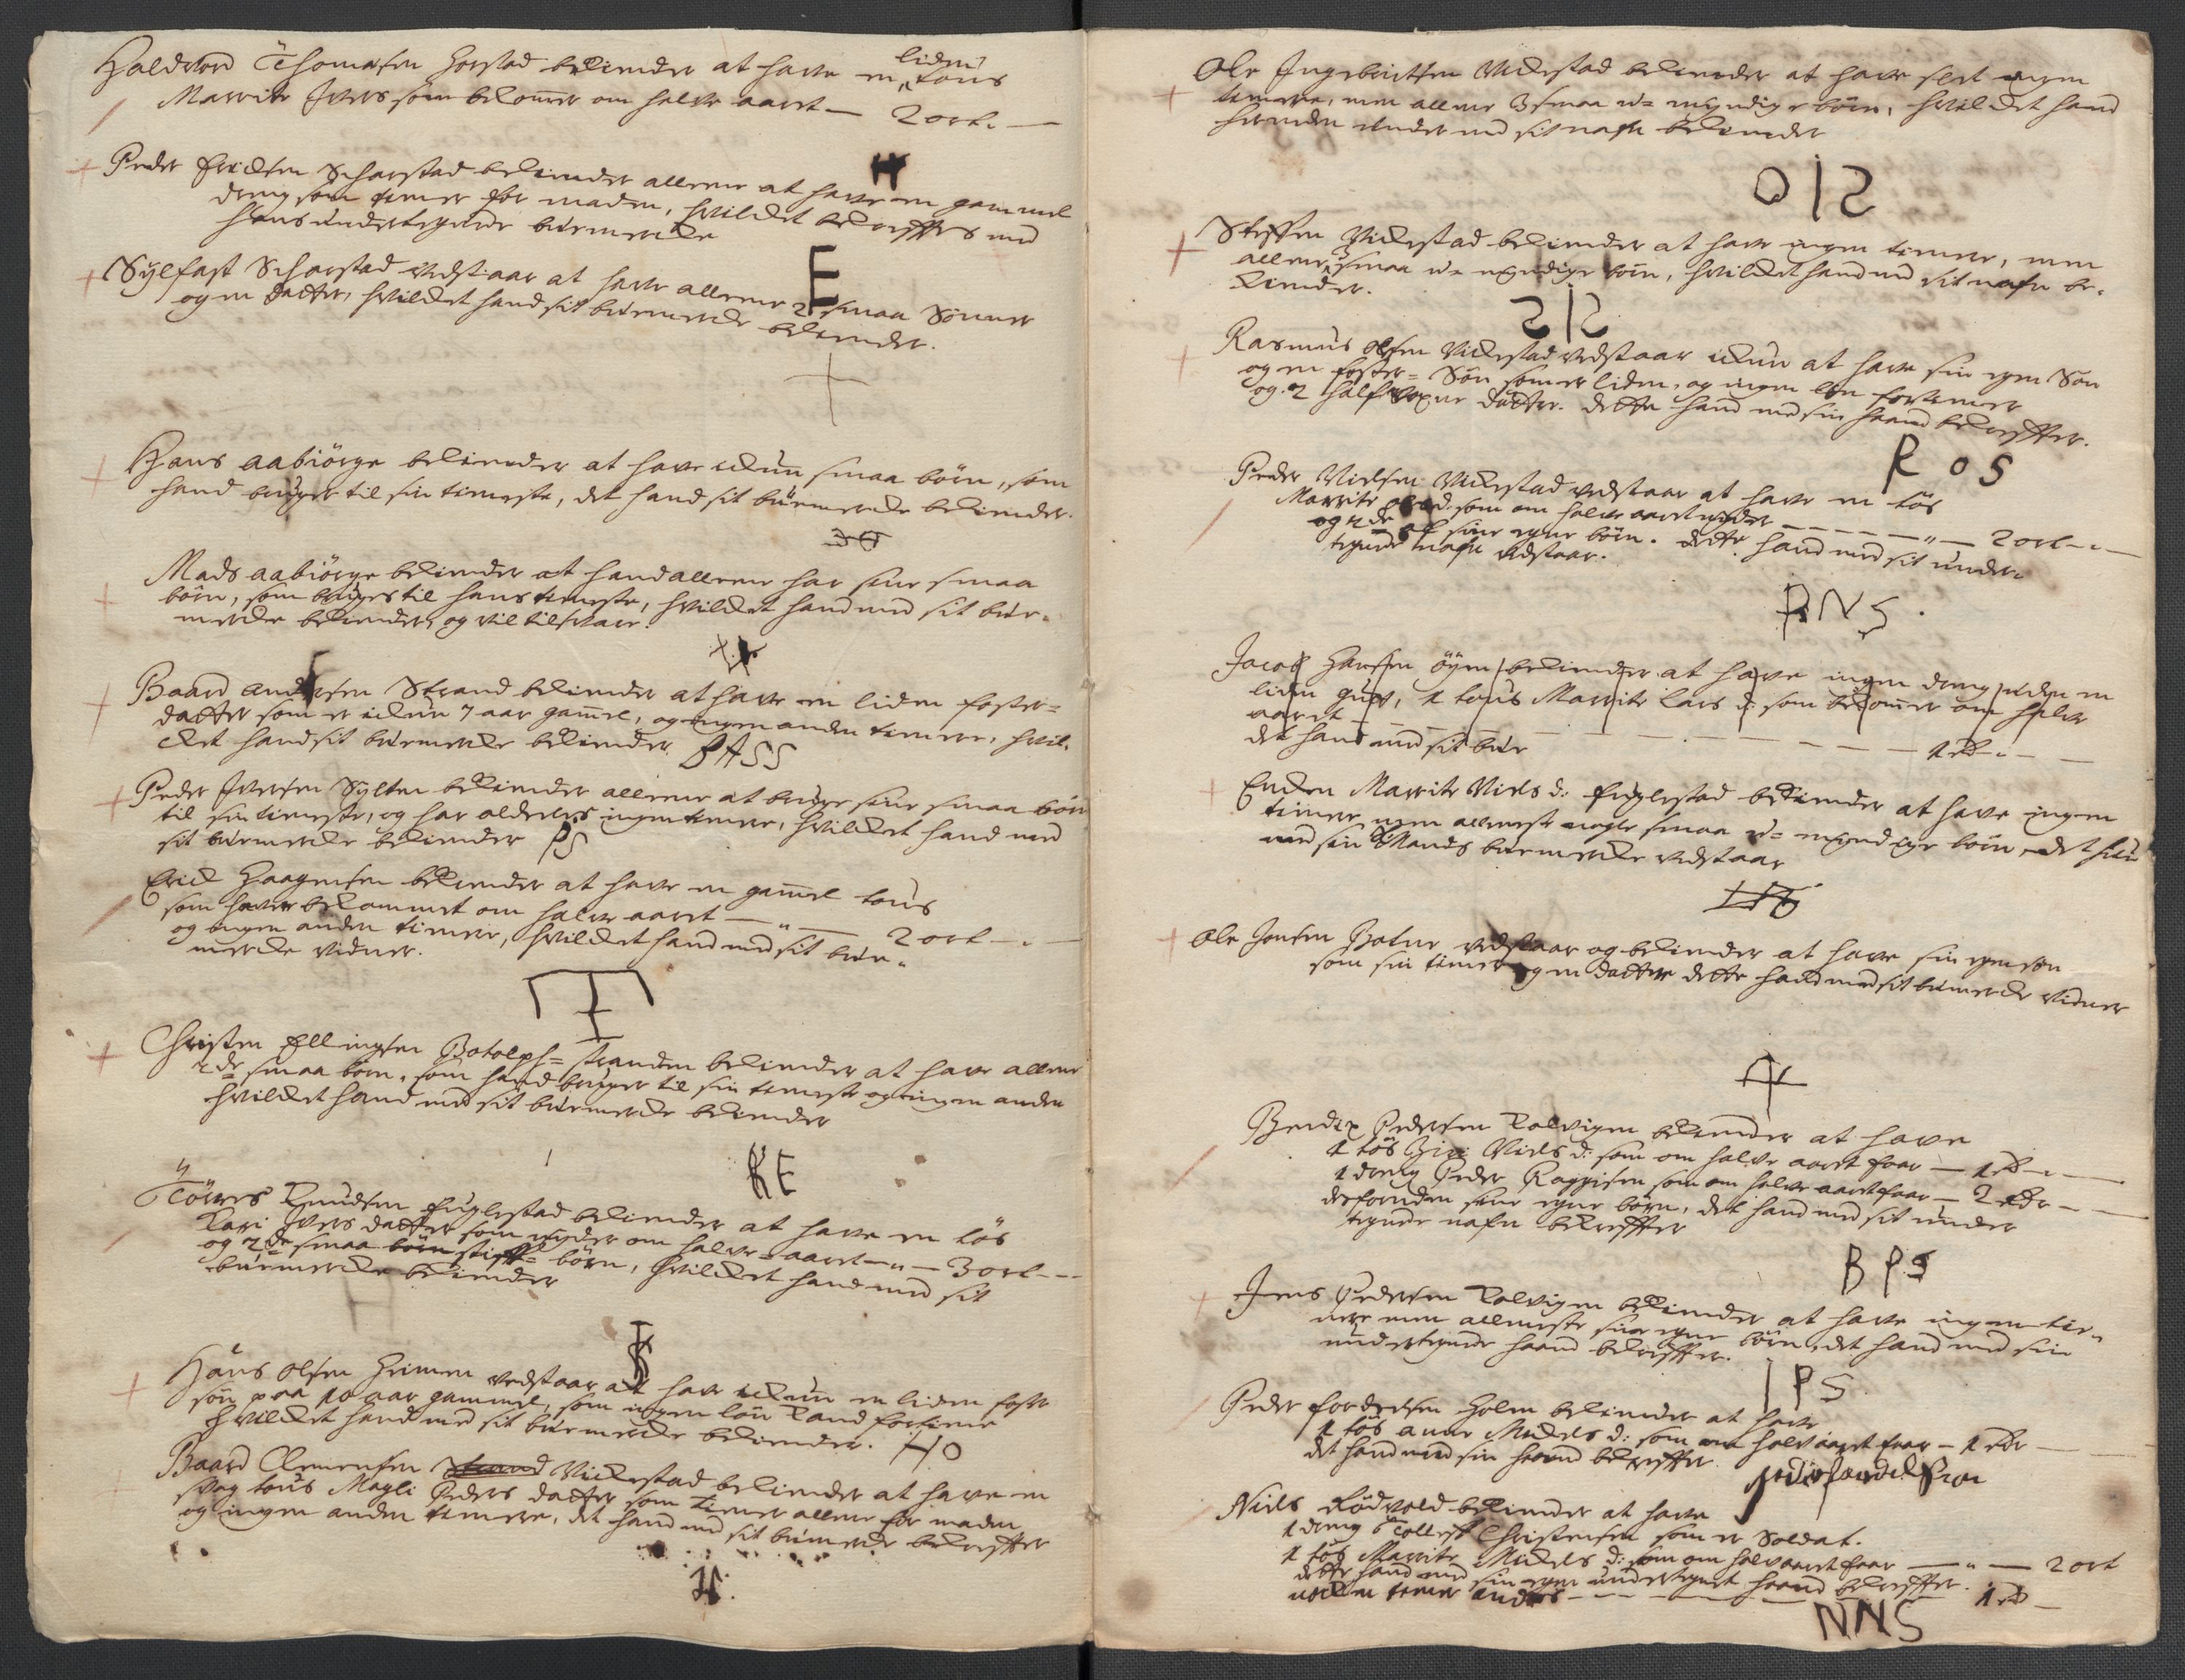 Haldvord Thomesen Horstad bekiender at have en liden tøus
Marrite Ivers som bekomer om halve aaret — 2 ort. —
H
Peder Ericksen Scharstad bekiender alleene at have en gammel
dreng som tiener for maden, hvilcket bekreffter med
hans undertegnede bumercke
E
Sylfast Scharstad vedstaar at have alleene 2 smaa Sønner
og en datter, hvilcket hand sit bumercke bekiender.
Hans Aabiørge bekiender at have ickun smaa børn, som
hand bruger til sin tieneste, det hand sit bumercke bekiender.
Mads Aabiørge bekiender at hand alleene har sine smaa
børn, som bruges til hans tieneste, hvilcket hand med sit bue-
mercke bekiender, og vil tilstaae.
Baard Andersen Strand bekiender at have en liden foster-
datter som er ickun 7 aar gamel, og ingen anden tienere, hvil-
cket hand sit buemercke bekiender BASS
Peder Iversen Sylten bekiender alleene at bruge sine smaa børn
til sin tieneste, og har aldeeles ingen tienere, hvilcket hand med
sit buemercke bekiender PS
Erick Haagensen bekiender at have en gamel tøus
som haver bekommet om halve aaret — " — 2 ort — " —
og ingen anden tienere, hvilcket hand med sit bue-
mercke vidner.
Christen Ellingsen Botolph-stranden bekiender at have allene
2de smaa børn, som hand bruger til sin tieneste og ingen anden
hvilcket hand med sit buemercke bekiender
KE
Tørres Knudsen Fuglestad bekiender at have en tøs
Kari Ivers datter som nyder om halve aaret — " — 3 ort — —
og 2de smaa børn stiff-børn, hvilcket hand med sit
buemercke bekiender
Hans Olsen Heimen vedstaar at have ickun en liden foster
søn paa 10 aar gammel, som ingen løn kand fortiene
hvilcket hand med sit buemercke bekiender. HO
Baard Clemensen Strand Vickestad bekiender at have en
svag tøus Magli Peders datter som tiener allene for maden
og ingen anden tienere, det hand med sit bumercke bekreffter
Ole Ingebrictsen Vickestad bekiender at have slet ingen
tienere, men allene 3 smaa u-myndige børn, hvilcket hand
herunder med sit nafn bekiender
OIS
Steffen Vickestad bekiender at have ingen tiener, men
allene smaa u-myndige børn, hvilcket hand med sit nafn be-
kiender.
SIS
Rasmus Olsen Vickestad vedstaar ickun at have sin egen Søn
og en foster-Søn som er liden, og ingen løn fortiener
og 2 halfvoxne døttre. dette hand med sin haand bekreffter.
ROS
Peder Nielsen Vickestad vedstaar at have en tøs
Marrite som om halve aaret nyder — — — " — 2 ort — " —
og 2de af sine egne børn. dette hand med sit under-
tegnede nafn vedstaar.
PNS.
Jacob Hansen Øyen bekiender at have ingen dreng uden en
liden gut, 1 tøus Marrite Lars d: som bekomer om halve
aaret — — — 1 rd — " —
det hand med sit bue
Encken Marrite Niels d: Fuglestad bekiender at have ingen
tienere uden alleneste nogle smaa u-myndige børn, det hun
med sin S: Mands buemercke vedstaar
Ole Jensen Botne vedstaar og bekiender at have sin egen søn
som sin tiener og en datter dette hand med sit bumercke vidner
Bendix Pedersen Tolvigen bekiender at have
1 tøs Niels d: som om halve aaret faar — 1 rd — " —
1 dreng Peder som om halve aaret faar — 2 rdr — —
desforuden sine egne børn, det hand med sit under
tegnede nafn bekreffter
BPS
Jens Pedersen Tolvigen bekiender at have ingen tie-
nere men alleneste sine egne børn, det hand med sin
undertegnede haand bekreffter.
IPS
Peder Holm bekiender at have
1 tøs Anne Mickels d: som om halv aaret faar — 1 rdr —
det hand med sin haand bekreffter.
Niels Rødvold bekiender at have
1 dreng Tolleff Christensen som er Soldat.
1 tøs Marrite Mickels d: som om halv aaret faar — " — 2 ort
dette hand med sin egen undertegnet haand bekreffter.
nock en tiener Anders — — — 1 rd —
NNS